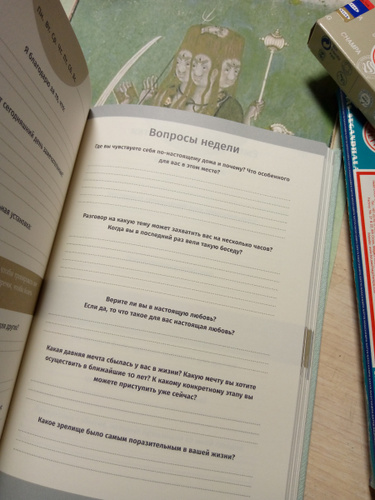 Пн Вт Ср Чт Пт Сб Вс
Я благодарю за то, что
сегодняшний день замечательным
Вопросы недели
Где вы чувствуете себя по-настоящему дома и почему? Что особенного
для вас в этом месте?
Разговор на какую тему может захватить вас на несколько часов?
Когда вы в последний раз вели такую беседу?
Верите ли вы в настоящую любовь?
Если да, то что такое для вас настоящая любовь?
Какая давняя мечта сбылась у вас в жизни? Какую мечту вы хотите
осуществить в ближайшие 10 лет? К какому конкретному этапу вы
можете приступить уже сейчас?
Какое зрелище было самым поразительным в вашей жизни?
CHAMPA